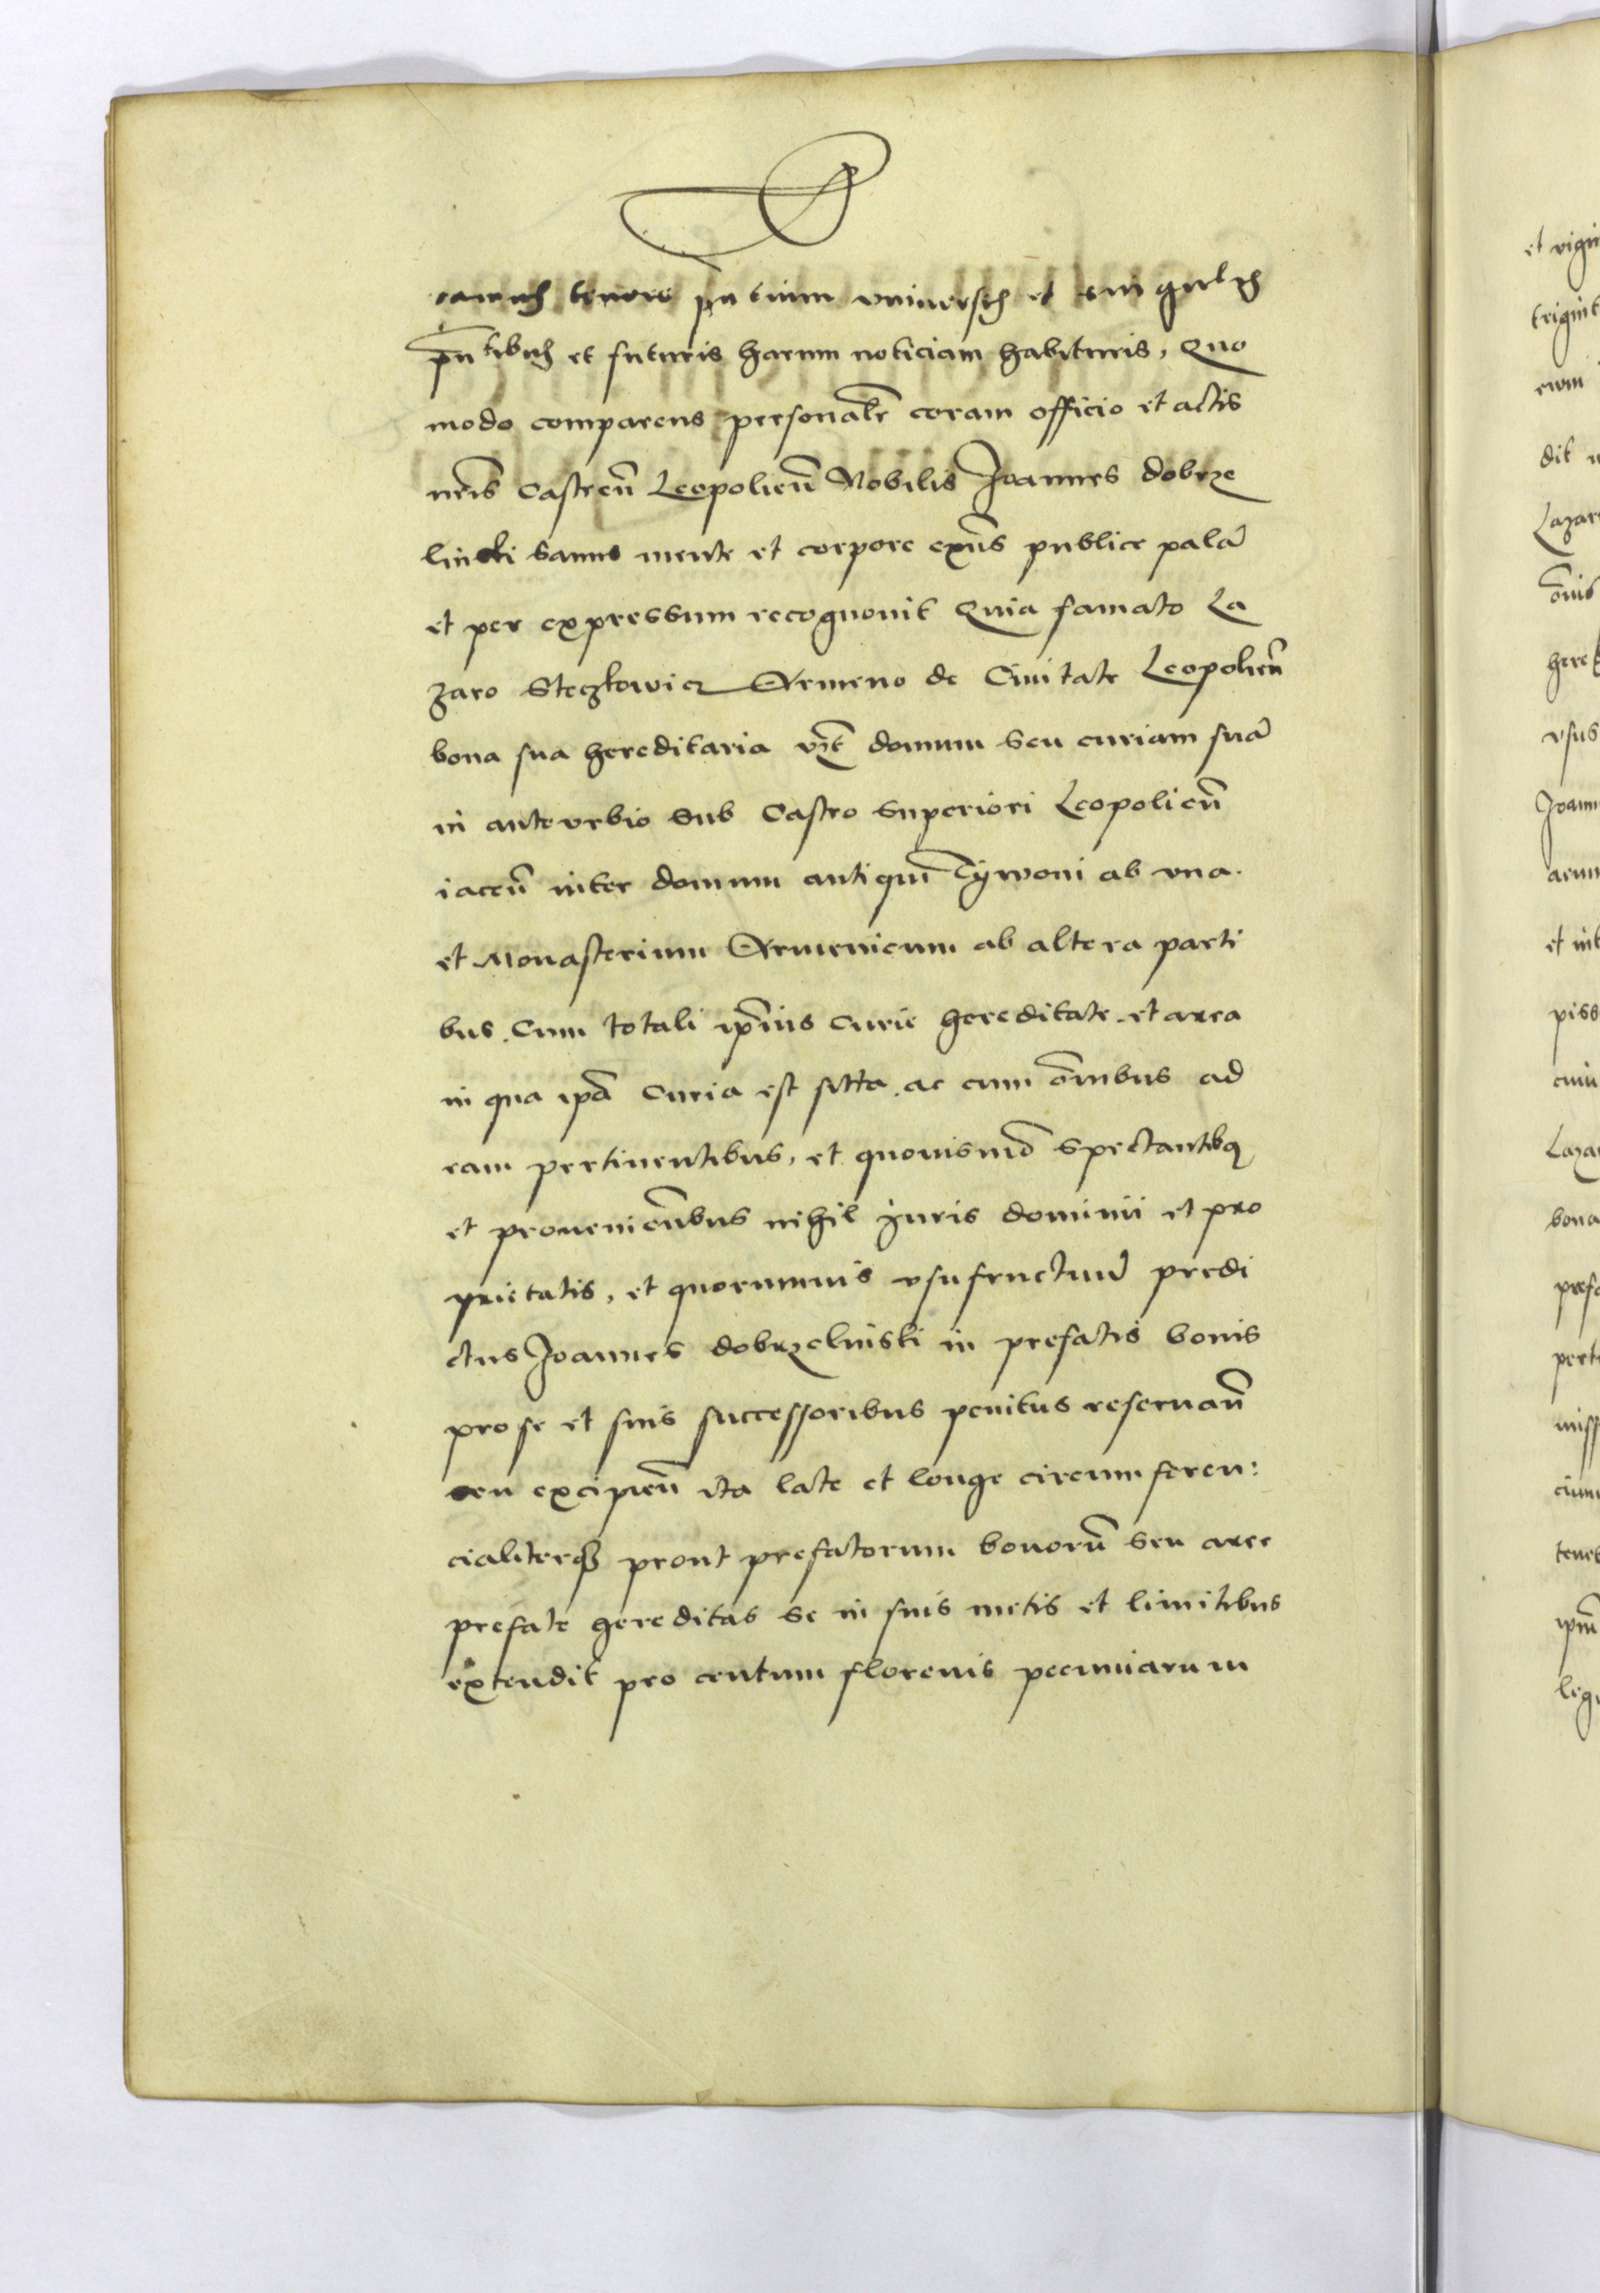 ramus tenore pntium vniversis et singulis
pntibus et futuris harum noticiam habituris, Quo
modo comparens personalr coram officio et actis
nris Castren Leopolien Nobilis Joannes dobrze
linski sanus mente et corpore exns publice pala
et per expressum recognouit Quia famato La
zaro Steczkowicz Armeno de Ciuitate Leopolien
bona sua hereditaria vzt domum seu curiam sua
in anteurbio sub Castro superiori Leopolien
iacen inter domum antiqui Tywoni ab vna.
et Monasterium Armenicum ab altera parti
bus. Cum totali ipsius curie hereditate et area
in qua ipa Curia est sitta. ac cum omibus ad
eam pertinentibus, et quouismd spectantibq
et prouenientibus nihil Juris dominii et pro
prietatis, et quorumuis vsufructuu predi
ctus Joannes dobrzelinski in prefatis bonis
pro se et suis successoribus penitus reseruan
seu excipien ita late et longe circumferen:
cialiterq prout prefatorum bonoru seu aree
prefate hereditas se in suis metis et limitibus
extendit pro centum florenis pecuniarum
et vigin
trigint
dit
Lazar
omis
hered
vsus
Joann
arum
et int
piss
cuiu
Lazar
bona
prefa
perti
miss
cium
tene
ipm
leg